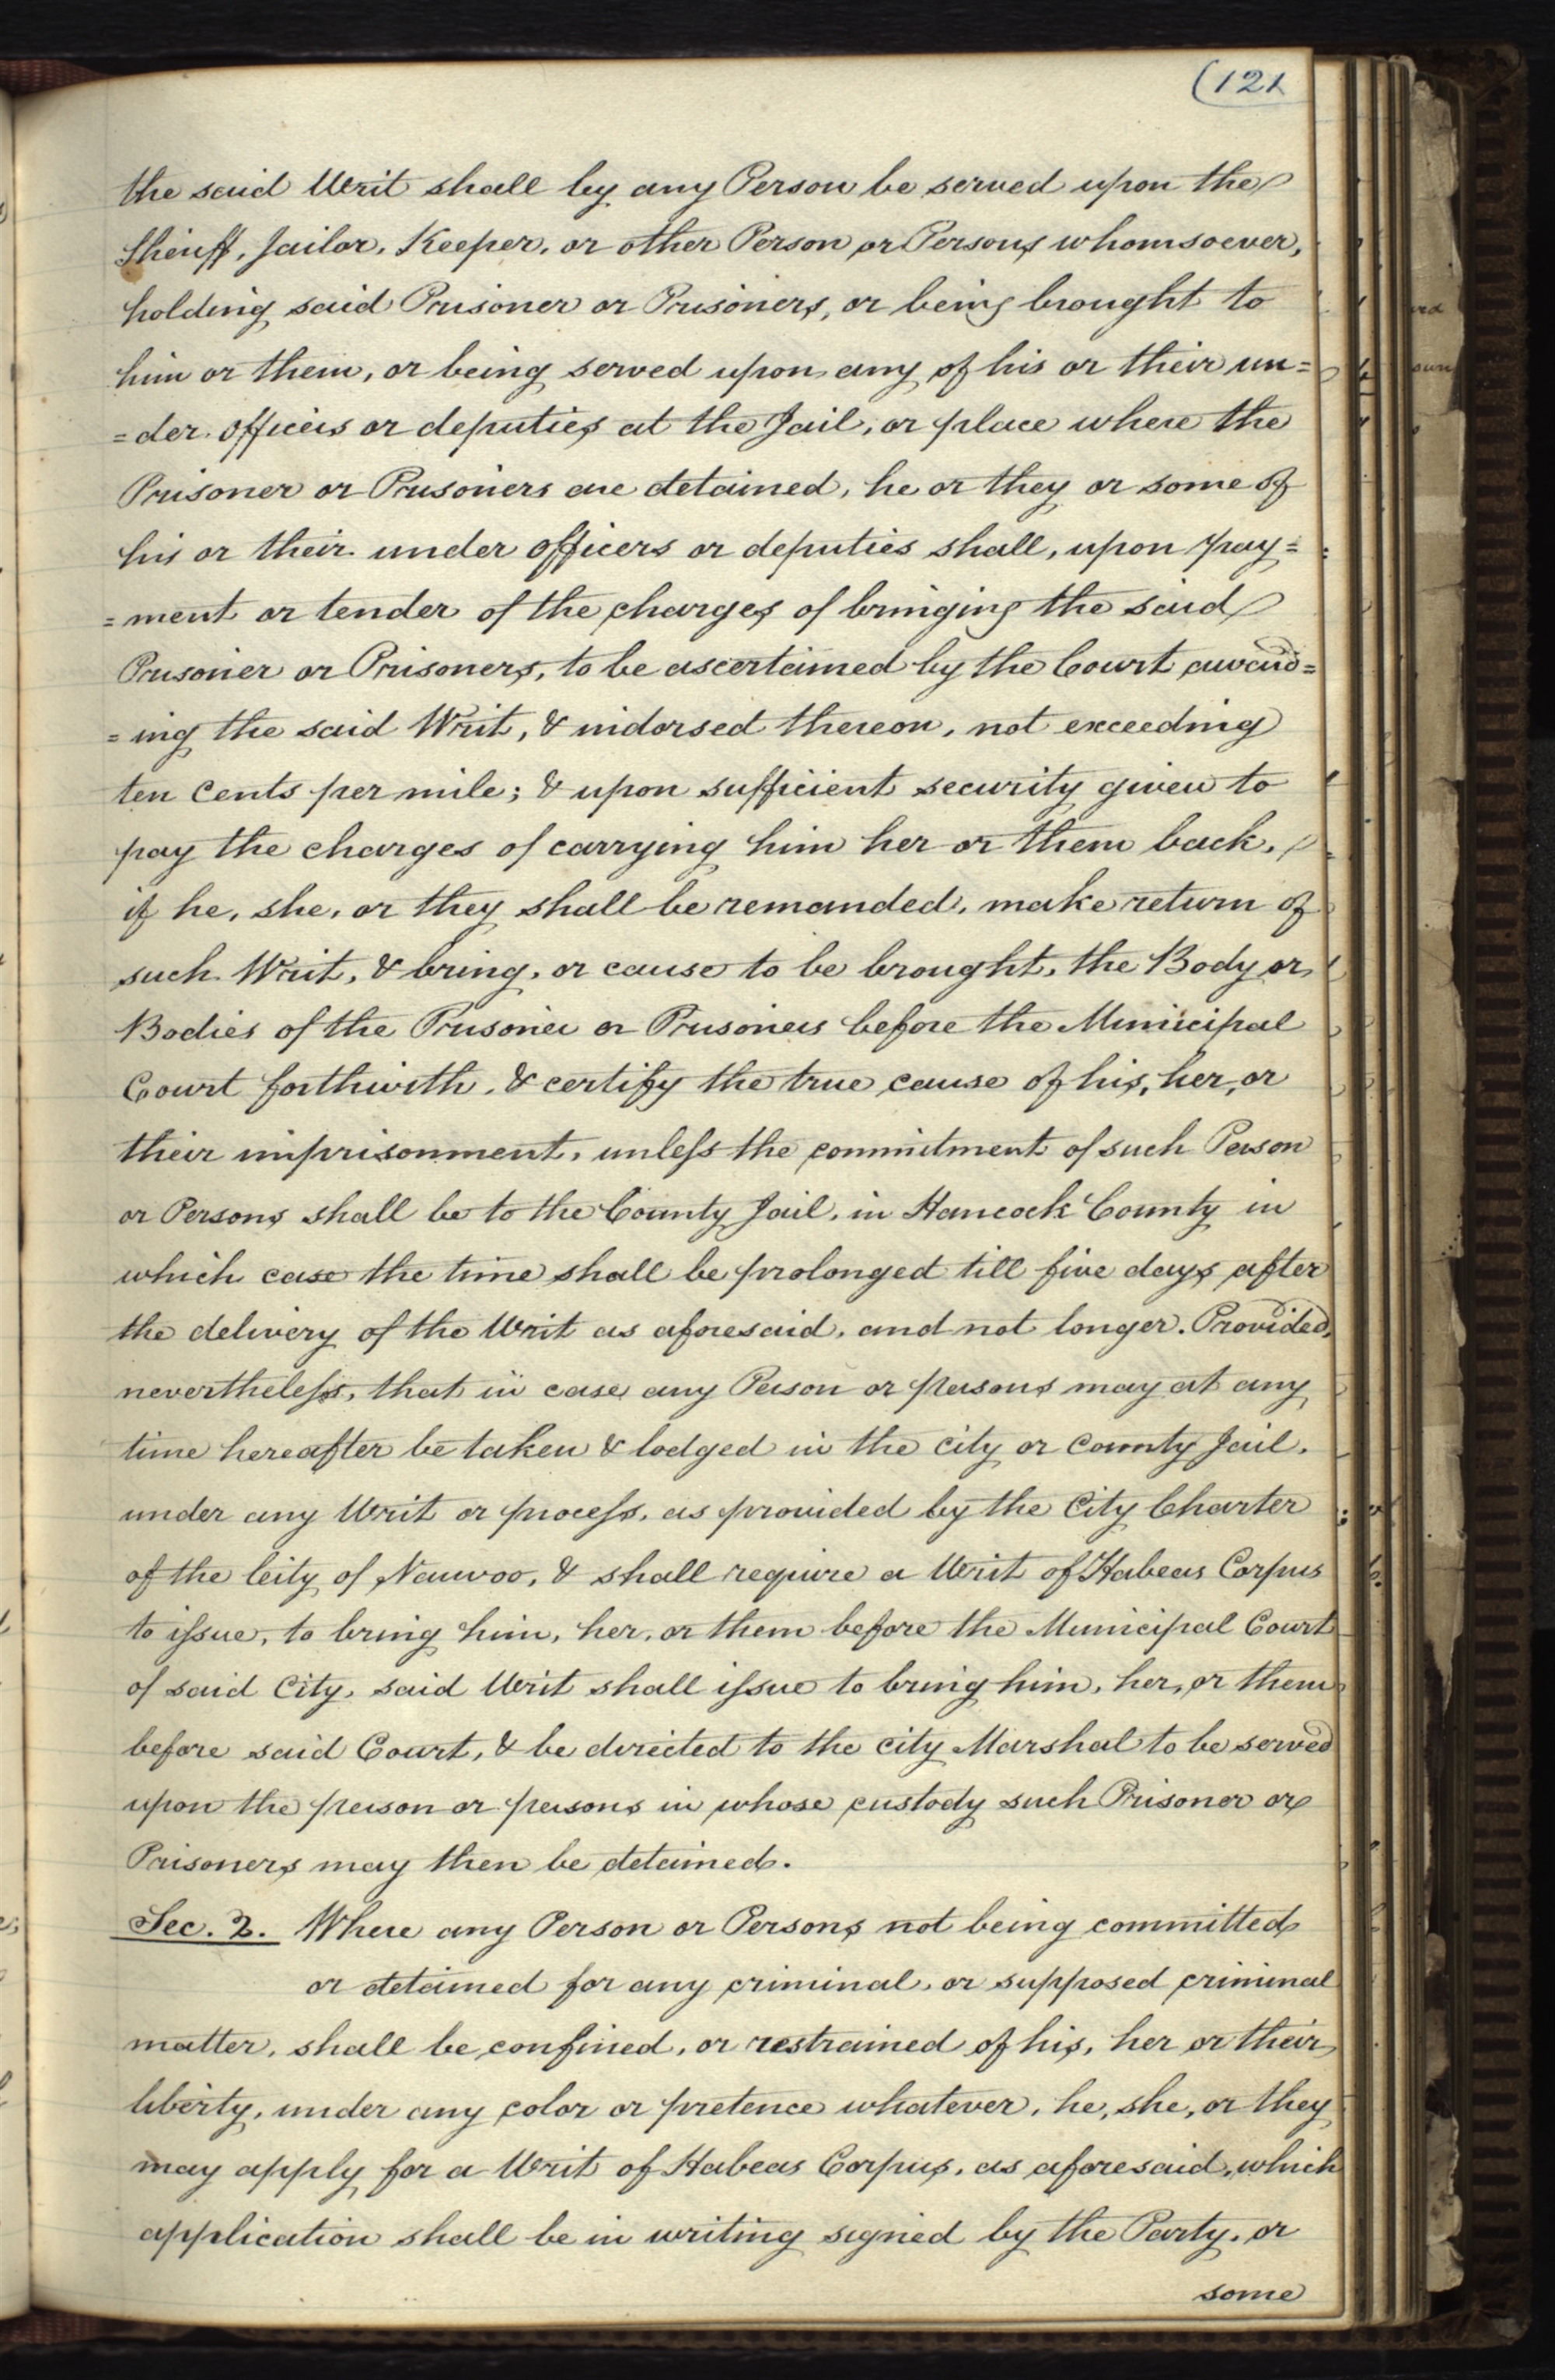 (121
the said Writ shall by any Person be served upon the
Sheriff, Jailor, Keeper, or other Person or Persons whomsoever,
holding said Prisoner or Prisoners, or being brought to
him or them, or being served upon any of his or their un=
=der officers or deputies at the Jail, or place where the
Prisoner or Prisoners are detained, he or they or some of
his or their under officers or deputies shall, upon pay=
=ment or tender of the charges of bringing the said
Prisoner or Prisoners, to be ascertained by the Court award=
=ing the said Writ, & indorsed thereon, not exceeding
ten cents per mile; & upon sufficient security given to
pay the charges of carrying him her or them back,
if he, she, or they shall be remanded, make return of
such Writ, & bring, or cause to be brought, the Body or
Bodies of the Prisoner or Prisoners before the Municipal
Court forthwith, & certify the true cause of his, her, or
their imprisonment, unless the commitment of such Person
or Persons shall be to the County Jail, in Hancock County in
which case the time shall be prolonged till five days after
the delivery of the Writ as aforesaid, and not longer. Provided,
nevertheless, that in case any Person or persons may at any
time hereafter be taken & lodged in the city or county Jail,
under any Writ or process, as provided by the City Charter
of the City of Nauvoo, & shall require a Writ of Habeas Corpus
to issue, to bring him, her, or them before the Municipal Court
of said City, said Writ shall issue to bring him, her, or them
before said Court, & be directed to the city Marshal to be served
upon the person or persons in whose custody such Prisoner or
Prisoners may then be detained.
Sec. 2. Where any Person or Persons not being committed
or detained for any criminal, or supposed criminal
matter, shall be confined, or restrained of his, her or their
liberty, under any color or pretence whatever, he, she, or they
may apply for a Writ of Habeas Corpus, as aforesaid, which
application shall be in writing signed by the Party, or
some